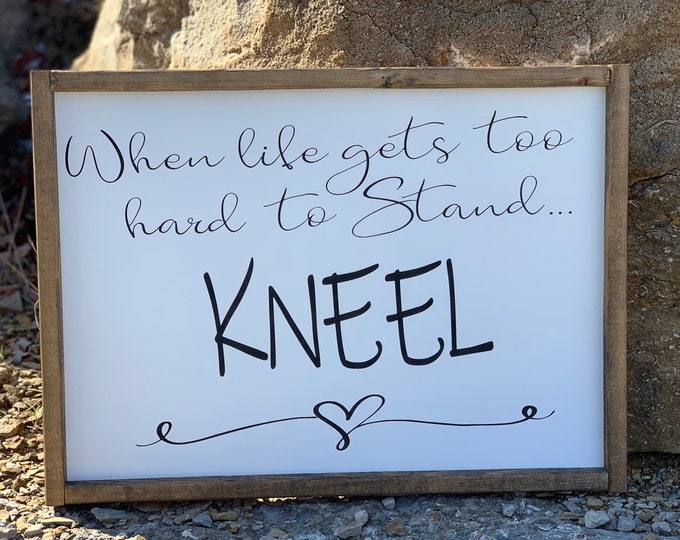 When life gets too
hard to Stand...
KNEEL